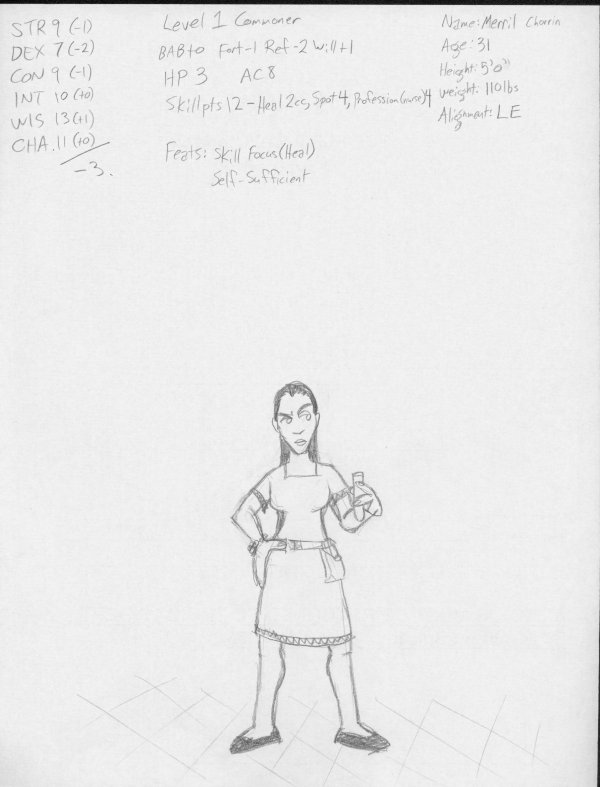 STR 9 (-1)
DEX 7 (-2)
CON 9 (-1)
INT 10 (+0)
WIS 13 (+1)
CHA. 11 (+0)
-3.
Level 1 Commoner
BAB+0 Fort-1 Ref-2 Will+1
HP 3 AC8
Skill pts 12 - Heal 2cc, Spot 4, Profession (nurse) 4
Feats: Skill Focus (Heal)
Self-Sufficient
Name: Merril Chorrin
Age: 31
Height: 5'0"
weight: 110lbs
Alignment: LE